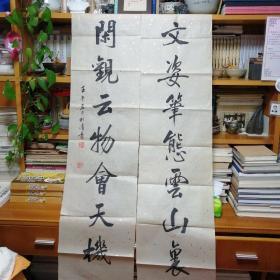 文姿筆態雲山裏
閑觀云物會天機